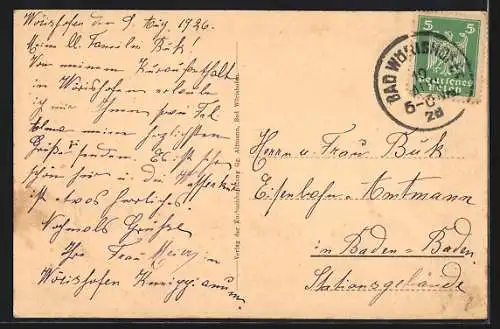 Wörishofen den 9. Aug. 1926.
Mein ll. Familie Buk!
Von meinem Kuraufenthalt
in Wörishofen erlaube
ich mir Ihnen
meine herzlichsten
Grüße senden. Es ist sehr
schön hier u die Wasserkur
ist etwas herrliches.
Nochmals Grüße
Ihre Frau
Wörishofen Kneippianum.
Verlag der Buchhandlung Bad Wörishofen
5 5
Deutsches
Reich
BAD WÖRISHOFEN
26
Herrn u Frau Buk
Eisenbahn-Amtmann
in Baden-Baden
Stationsgebäude